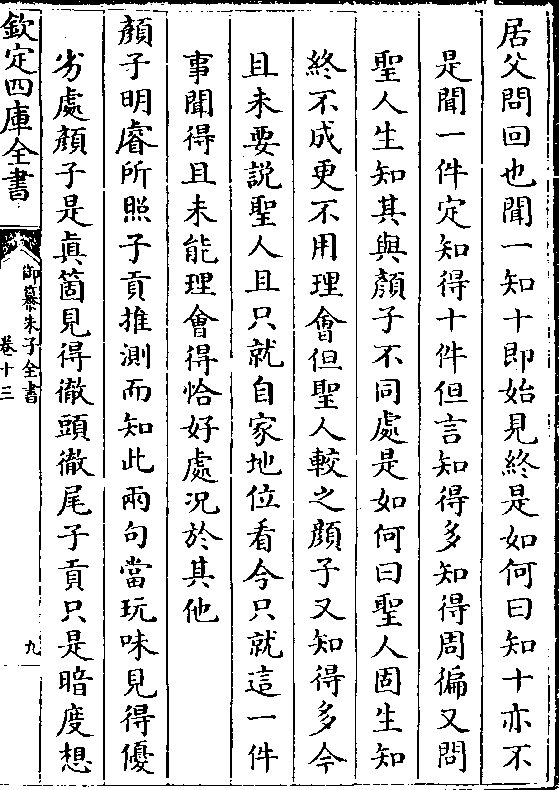 居父問回也聞一知十即始見終是如何曰知十亦不
是聞一件定知得十件但言知得多知得周徧又問
聖人生知其與顏子不同處是如何曰聖人固生知
終不成更不用理會但聖人較之顏子又知得多今
且未要説聖人且只就自家地位看今只就這一件
事聞得且未能理會得恰好處况於其他
顏子明睿所照子貢推測而知此兩句當玩味見得優
劣處顏子是真箇見得徹頭徹尾子貢只是暗度想
欽定四庫全書
御纂朱子全書
卷十三
九